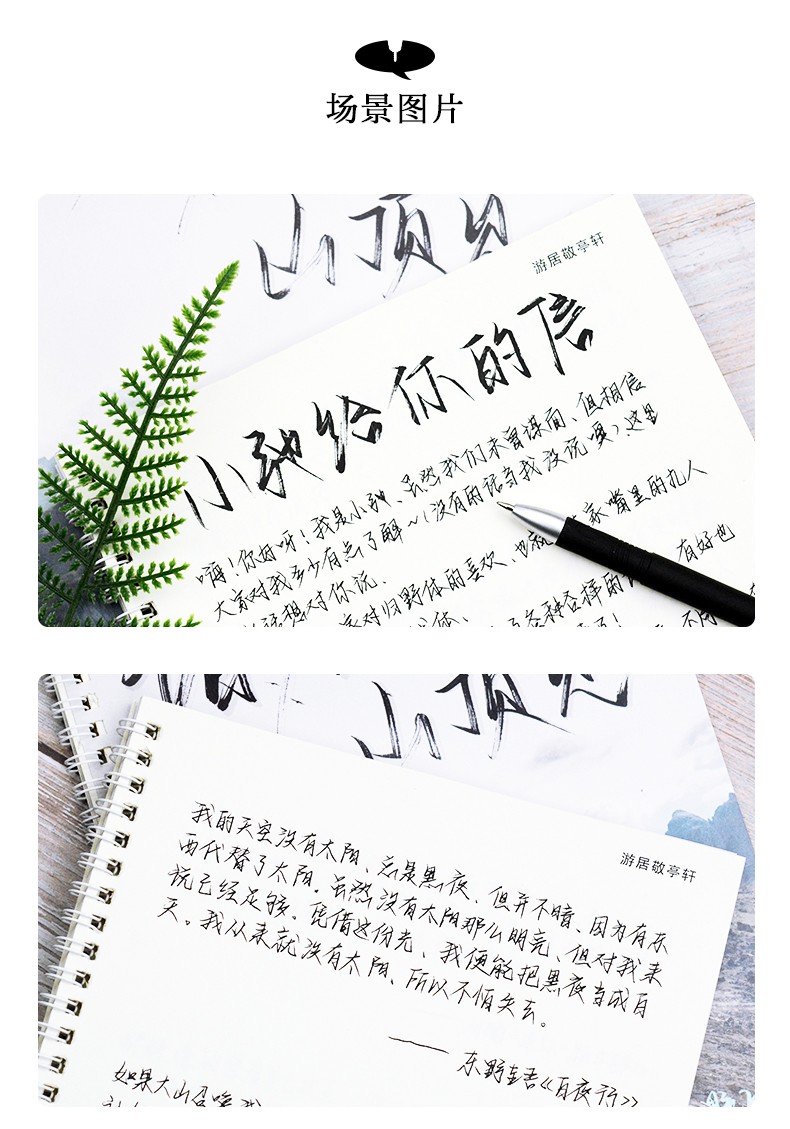 场景图片
山顶见
游居敬亭轩
小驰给你的信
嗨！你好呀！我是小驰、虽然我们未曾谋面、但相信
大家对我多少有点了解～（没有的话当我没说耍）、这里
想对你说、
家对归野体的喜欢、也就 家嘴里的扎人
有好也
山顶见
游居敬亭轩
我的天空没有太阳、总是黑夜、但并不暗、因为有东
西代替了太阳。虽然没有太阳那么明亮、但对我来
说已经足够。凭借这份光、我便能把黑夜当成白
天。我从来就没有太阳、所以不怕失去。
——东野圭吾《白夜行》
如果大山召唤我